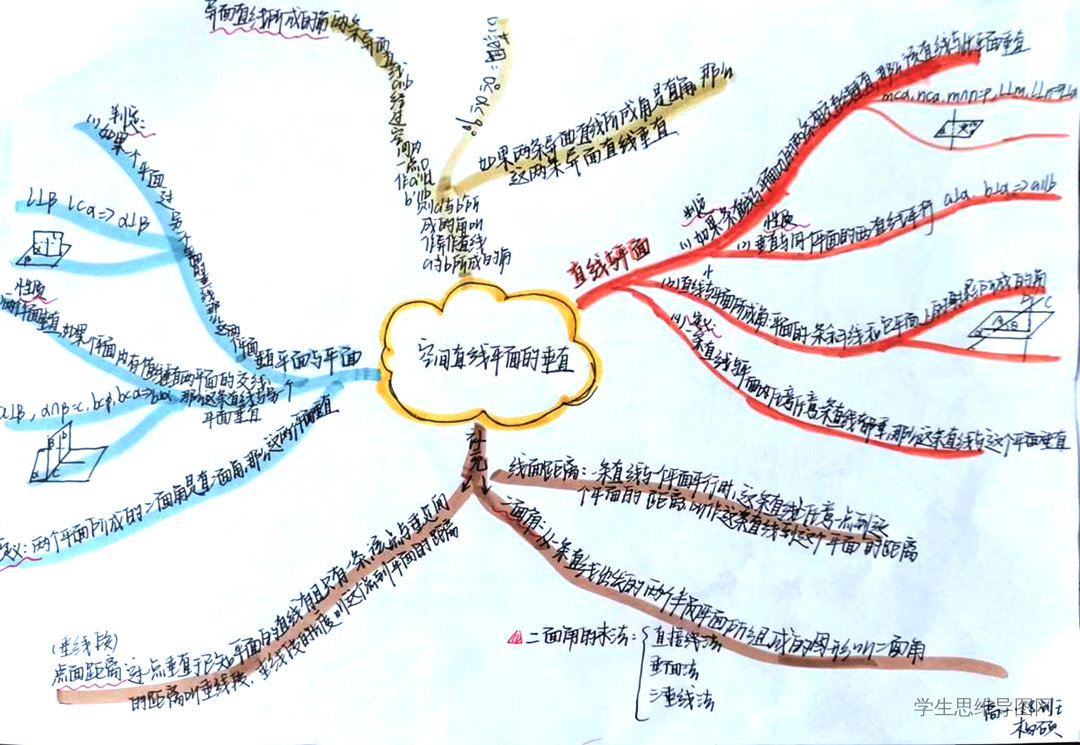 空间直线平面的垂直
异面直线所成的角
两条异面直线a,b
经过空间
一点O
作a'∥a
b'∥b
则a'与b'所
成的角叫
作异面直线
a与b所成的角
范围:
如果两条异面直线所成角是直角,那么
这两条异面直线垂直
直线与平面
判定
(1)如果一条直线与平面内的两条相交直线垂直,那么该直线与此平面垂直
m⊂α,n⊂α,m∩n=P,l⊥m,l⊥n⇒l⊥α
性质
(2)垂直与同一个平面的两直线平行 a⊥α, b⊥α⇒a∥b
直线与平面所成角:平面的一条斜线和它平面上的射影所成的角
定义:
一条直线与平面内任意一条直线都垂直,那么这条直线与这个平面垂直
平面与平面
判定:
(1)如果一个平面过另一个平面的垂线,那么这两个平面垂直
l⊥β l⊂α⇒α⊥β
性质
两个平面垂直,如果一个平面内有一直线垂直两平面的交线,
那么这条直线与另一个
平面垂直
α⊥β,α∩β=c,b⊂β,b⊥c⇒b⊥α
定义:两个平面所成的二面角是直二面角,那么这两个平面垂直
补充
线面距离:一条直线与一个平面平行时,这条直线任意一点到这
个平面的距离叫作这条直线到这个平面的距离
二面角:从一条直线出发的两个半平面所组成的图形叫二面角
二面角的求法:
直接线法
垂面法
三垂线法
(垂线段)
点面距离:过一点垂直于已知平面的直线有且只有一条,该点与垂足间
的距离叫垂线段,垂线段的长度叫这个点到平面的距离
学生思维导图网